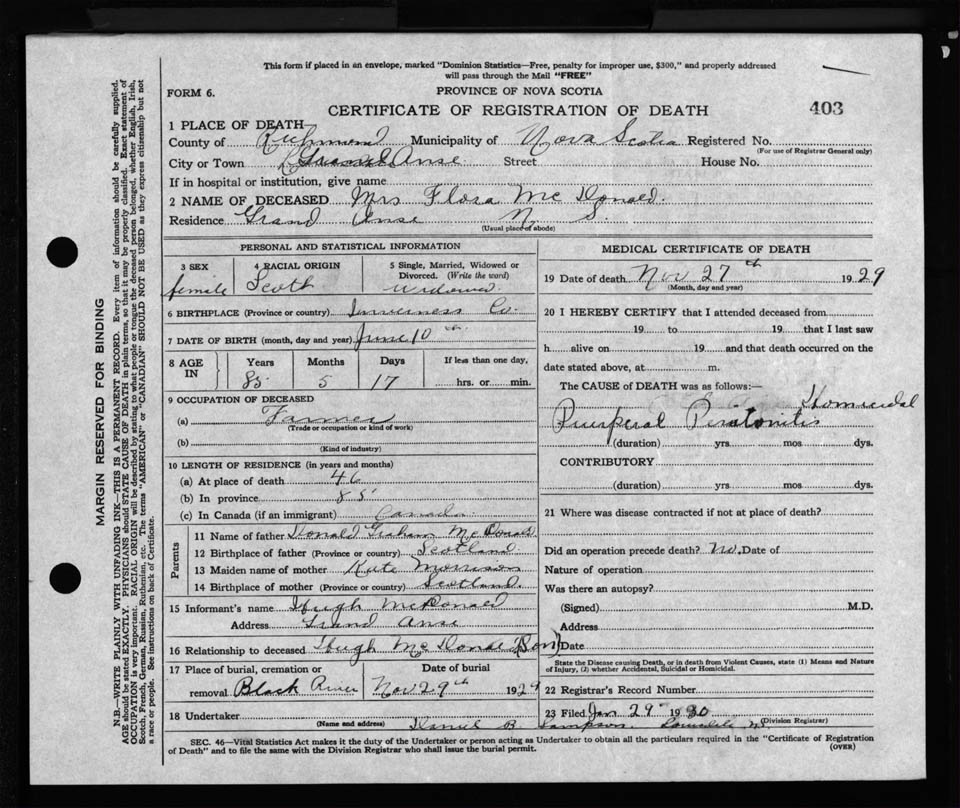 This form if placed in an envelope, marked "Dominion Statistics—Free, penalty for improper use, $300," and properly addressed
will pass through the Mail "FREE"
FORM 6.
PROVINCE OF NOVA SCOTIA
CERTIFICATE OF REGISTRATION OF DEATH
403
1 PLACE OF DEATH
County of Richmond Municipality of Nova Scotia Registered No.
(For use of Registrar General only)
City or Town Grand Anse Street House No.
If in hospital or institution, give name
2 NAME OF DECEASED Mrs Flora McDonald.
Residence Grand Anse N. S.
(Usual place of abode)
PERSONAL AND STATISTICAL INFORMATION
3 SEX
female
4 RACIAL ORIGIN
Scoth
5 Single, Married, Widowed or
Divorced. (Write the word)
Widowed
6 BIRTHPLACE (Province or country) Inverness Co.
7 DATE OF BIRTH (month, day and year) June 10th
8 AGE IN
Years Months Days If less than one day,
85 5 17 hrs. or min.
9 OCCUPATION OF DECEASED
(a) Farmer
(Trade or occupation or kind of work)
(b)
(Kind of industry)
10 LENGTH OF RESIDENCE (in years and months)
(a) At place of death 46
(b) In province 85
(c) In Canada (if an immigrant) Canada
Parents
11 Name of father Donald McDonald
12 Birthplace of father (Province or country) Scotland
13 Maiden name of mother Kate Morrison
14 Birthplace of mother (Province or country) Scotland
15 Informant's name Hugh McDonald
Address Grand Anse
16 Relationship to deceased Hugh McDonald (Son)
17 Place of burial, cremation or Date of burial
removal Black River Nov 29th 1929
18 Undertaker
(Name and address)
MEDICAL CERTIFICATE OF DEATH
19 Date of death Nov 27th 1929
(Month, day and year)
20 I HEREBY CERTIFY that I attended deceased from
19 to 19 that I last saw
h alive on 19 and that death occurred on the
date stated above, at m.
The CAUSE of DEATH was as follows:—
Homicidal
Puerperal Peritonitis
(duration) yrs mos dys.
CONTRIBUTORY
(duration) yrs. mos dys.
21 Where was disease contracted if not at place of death?
Did an operation precede death? No. Date of
Nature of operation
Was there an autopsy?
(Signed) M.D.
Address
Date
State the Disease causing Death, or in death from Violent Causes, state (1) Means and Nature
of Injury, (2) whether Accidental, Suicidal or Homicidal.
22 Registrar's Record Number
23 Filed Jan 29 1930
Daniel B. Sampson
(Division Registrar)
SEC. 46—Vital Statistics Act makes it the duty of the Undertaker or person acting as Undertaker to obtain all the particulars required in the "Certificate of Registration
of Death" and to file the same with the Division Registrar who shall issue the burial permit.
(OVER)
MARGIN RESERVED FOR BINDING
N.B.—WRITE PLAINLY WITH UNFADING INK—THIS IS A PERMANENT RECORD. Every item of information should be carefully supplied.
AGE should be stated EXACTLY. PHYSICIANS should STATE CAUSE OF DEATH in plain terms, so that it may be properly classified. Exact statement of
OCCUPATION is very important. RACIAL ORIGIN will be described by stating to what people or tongue the deceased person belonged, whether English, Irish,
Scotch, French, German, Russian, Ruthenian, etc. The terms "AMERICAN" or "CANADIAN" SHOULD NOT BE USED as they express citizenship but not
a race or people. See instructions on back of Certificate.